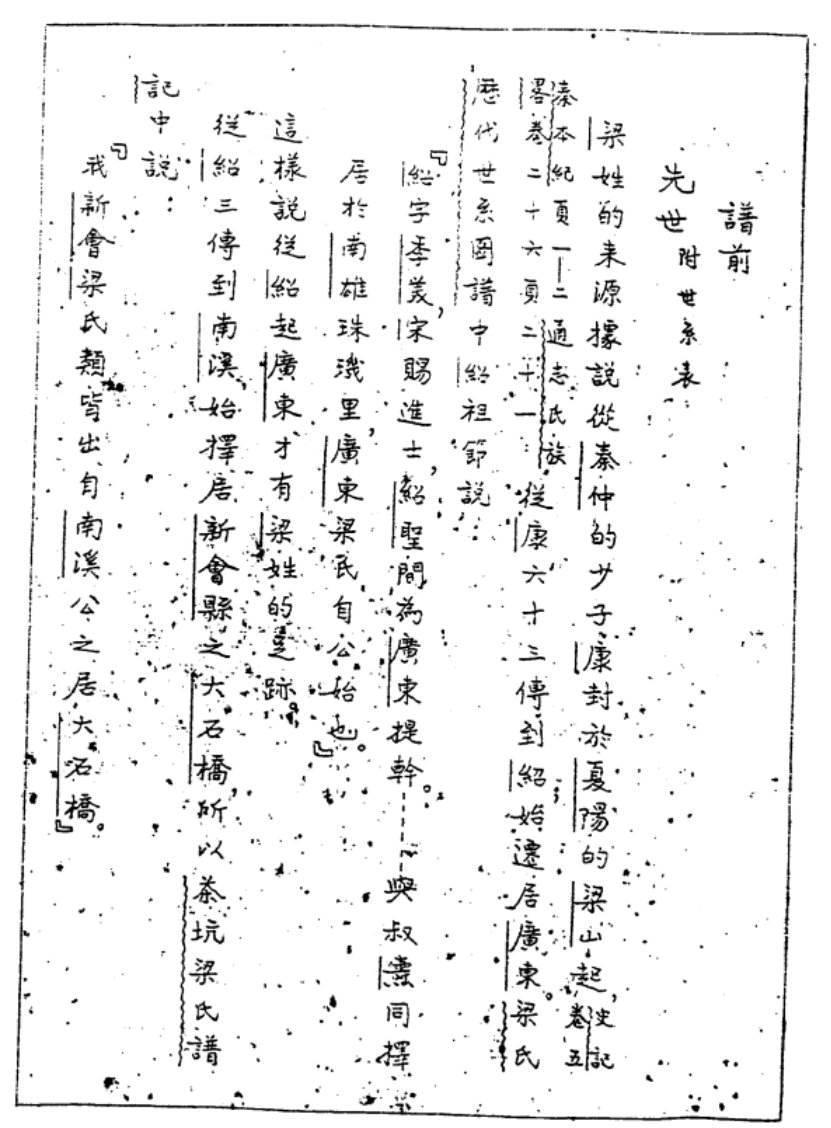 譜前
先世附世系表
梁姓的来源據說從秦仲的少子康封於夏陽的梁山起，史記卷五
秦本紀頁一—二通志氏族畧卷二十六頁二十一從康六十三傳到紹，始遷居廣東。梁氏
歷代世系圖譜中紹祖節說：
『紹字季美，宋賜進士，紹聖間為廣東提幹。……與叔燾同擇
居於南雄珠璣里，廣東梁氏自公始也。』
這樣說從紹起廣東才有梁姓的足跡。
從紹三傳到南溪，始擇居新會縣之大石橋，所以茶坑梁氏譜
記中說：
『我新會梁氏類皆出自南溪公之居大石橋。』